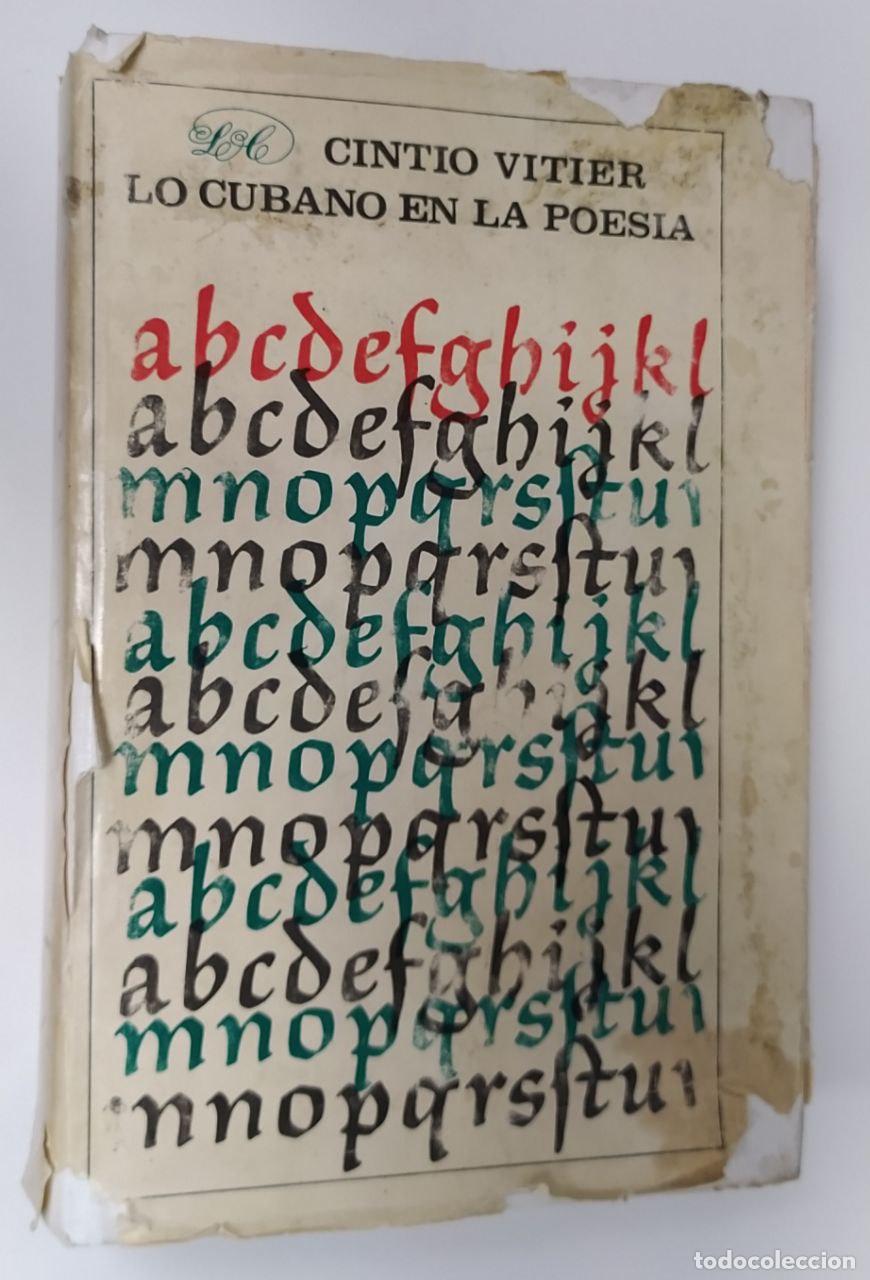 LC CINTIO VITIER
LO CUBANO EN LA POESIA
abcdefghijkl
abcdefghijkl
mnopqrsſtuı
mnopqrsſtuı
abcdefghijkl
abcdefghijkl
mnopqrsſtuı
mnopqrsſtuı
abcdefghijkl
abcdefghijkl
mnopqrsſtuı
nnopqrsſtuı
todocoleccion